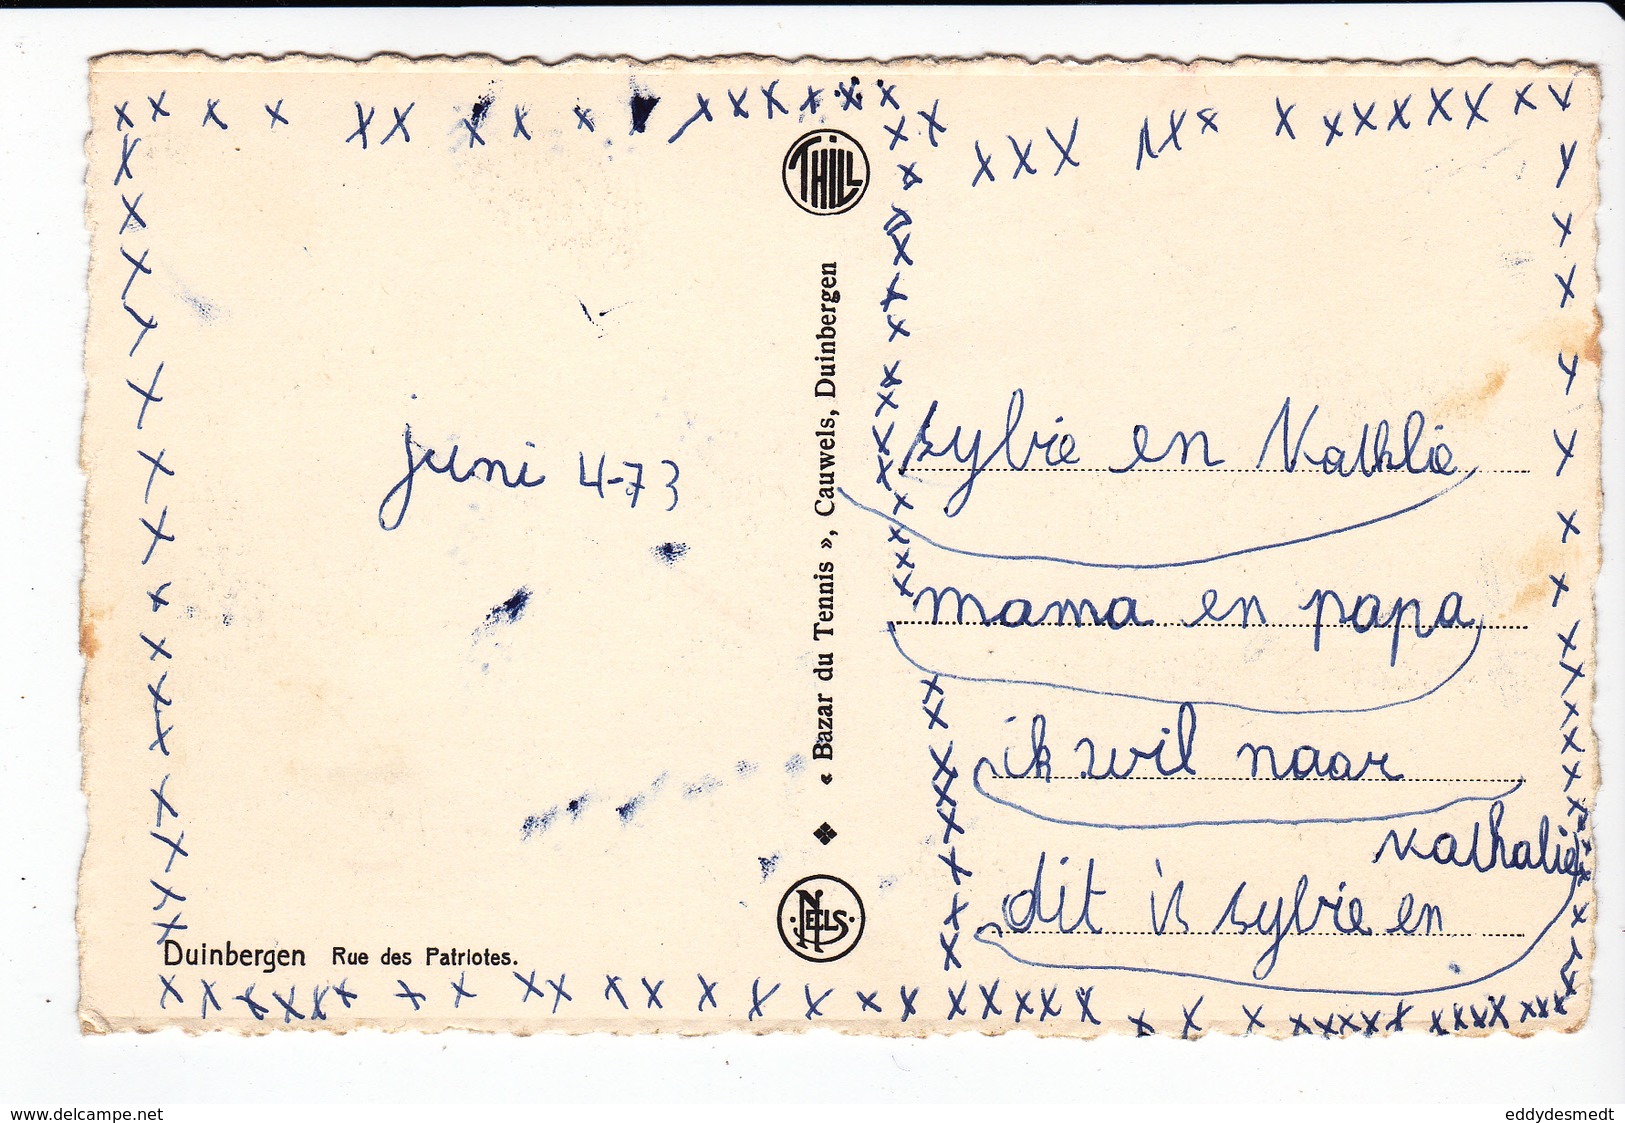 THILL
juni 4-73
« Bazar du Tennis », Cauwels, Duinbergen
NELS
Duinbergen Rue des Patriotes.
sylvie en Nathlie
mama en papa
ik wil naar
nathalie
dit is sylvie en
www.delcampe.net
eddydesmedt